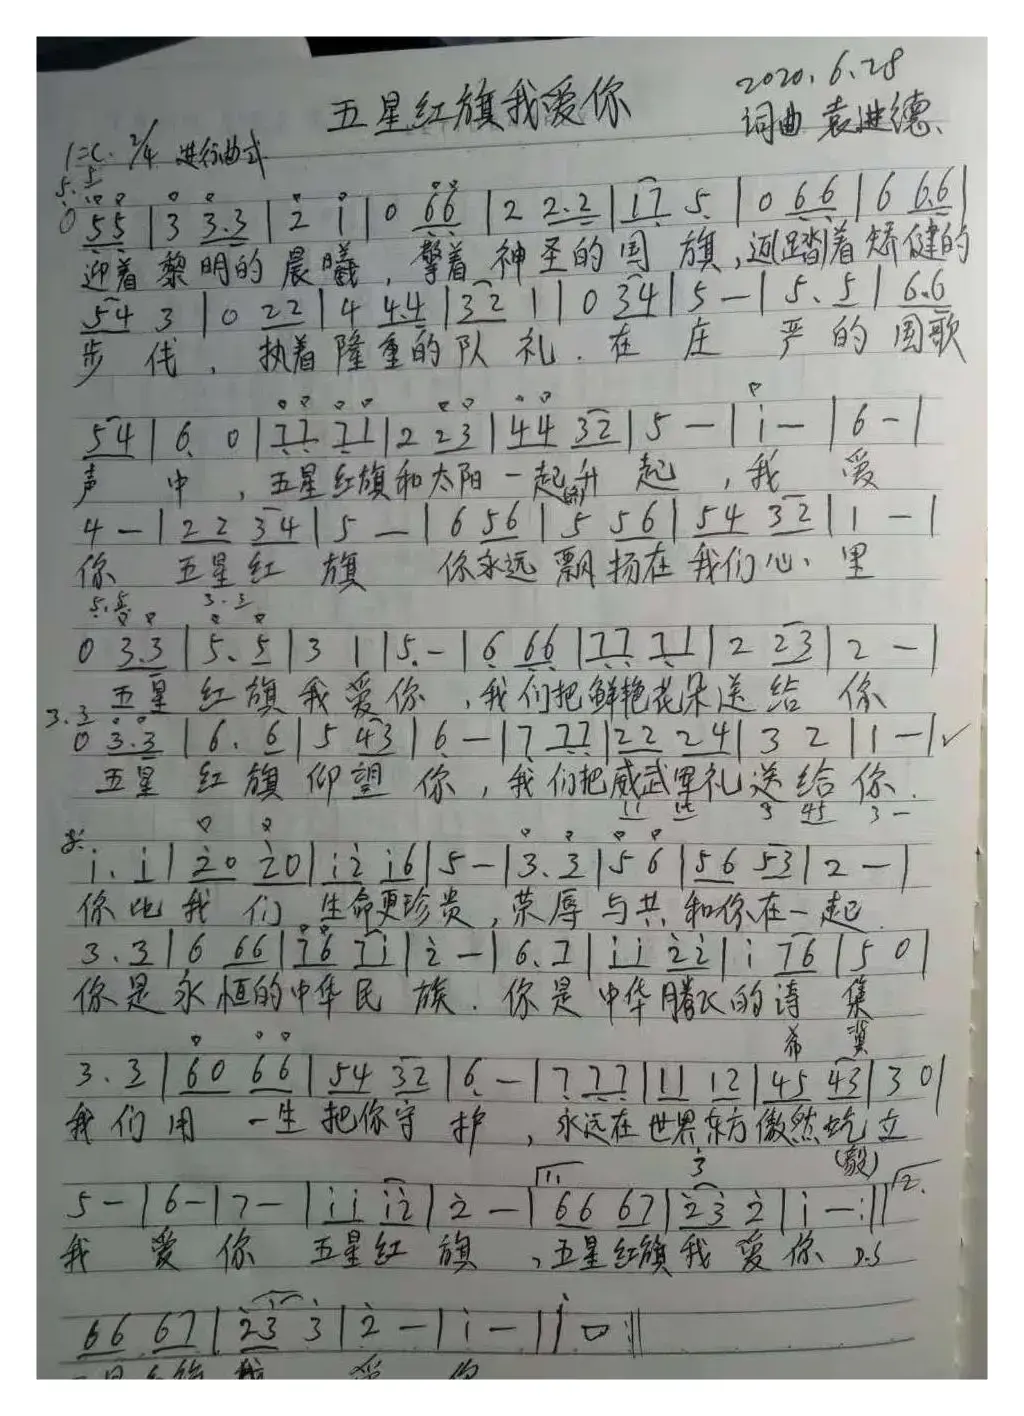 五星红旗我爱你
2020.6.28
词曲 袁进德
1=C. 2/4 进行曲式
5. 5
0 55 | 3 3.3 | 2 i | 0 66 | 2 2.2 | i7 5 | 0 66 | 6 6.6 |
迎着黎明的晨曦,擎着神圣的国旗,迈踏着矫健的
54 3 | 0 22 | 4 4.4 | 32 1 | 0 34 | 5 — | 5. 5 | 6.6
步伐,执着隆重的队礼.在庄严的国歌
54 | 6 0 | 77 71 | 2 23 | 44 32 | 5 — | i — | 6 — |
声中,五星红旗和太阳一起升起,我爱
4 — | 22 34 | 5 — | 6 56 | 5 56 | 54 32 | 1 — |
你 五星红旗 你永远飘扬在我们心里
5.5. 3.3
0 3.3 | 5. 5 | 3 1 | 5. — | 6 66 | 77 71 | 2 23 | 2 — |
五星红旗我爱你,我们把鲜艳花朵送给你
3.3
0 3.3 | 6. 6 | 5 43 | 6 — | 7 77 | 22 24 | 3 2 | 1 — |
五星红旗仰望你,我们把威武军礼送给你.
11 12 3 45 3 —
i. i | 20 20 | i2 i6 | 5 — | 3. 3 | 5 6 | 56 53 | 2 — |
你比我们生命更珍贵,荣辱与共和你在一起
3. 3 | 6 66 | 76 7i | 2 — | 6. 7 | ii 22 | i 76 | 5 0 |
你是永恒的中华民族.你是中华腾飞的诗集
希冀
3. 3 | 60 66 | 54 32 | 6 — | 7 77 | 11 12 | 45 43 | 3 0 |
我们用一生把你守护,永远在世界东方傲然屹立
3
(毅)
5 — | 6 — | 7 — | ii i2 | 2 — | 1. 66 67 | 23 2 | i — :|| 2.
我爱你 五星红旗,五星红旗我爱你 D.S
66 67 | 23 3 | 2 — | i — | i 0 ||